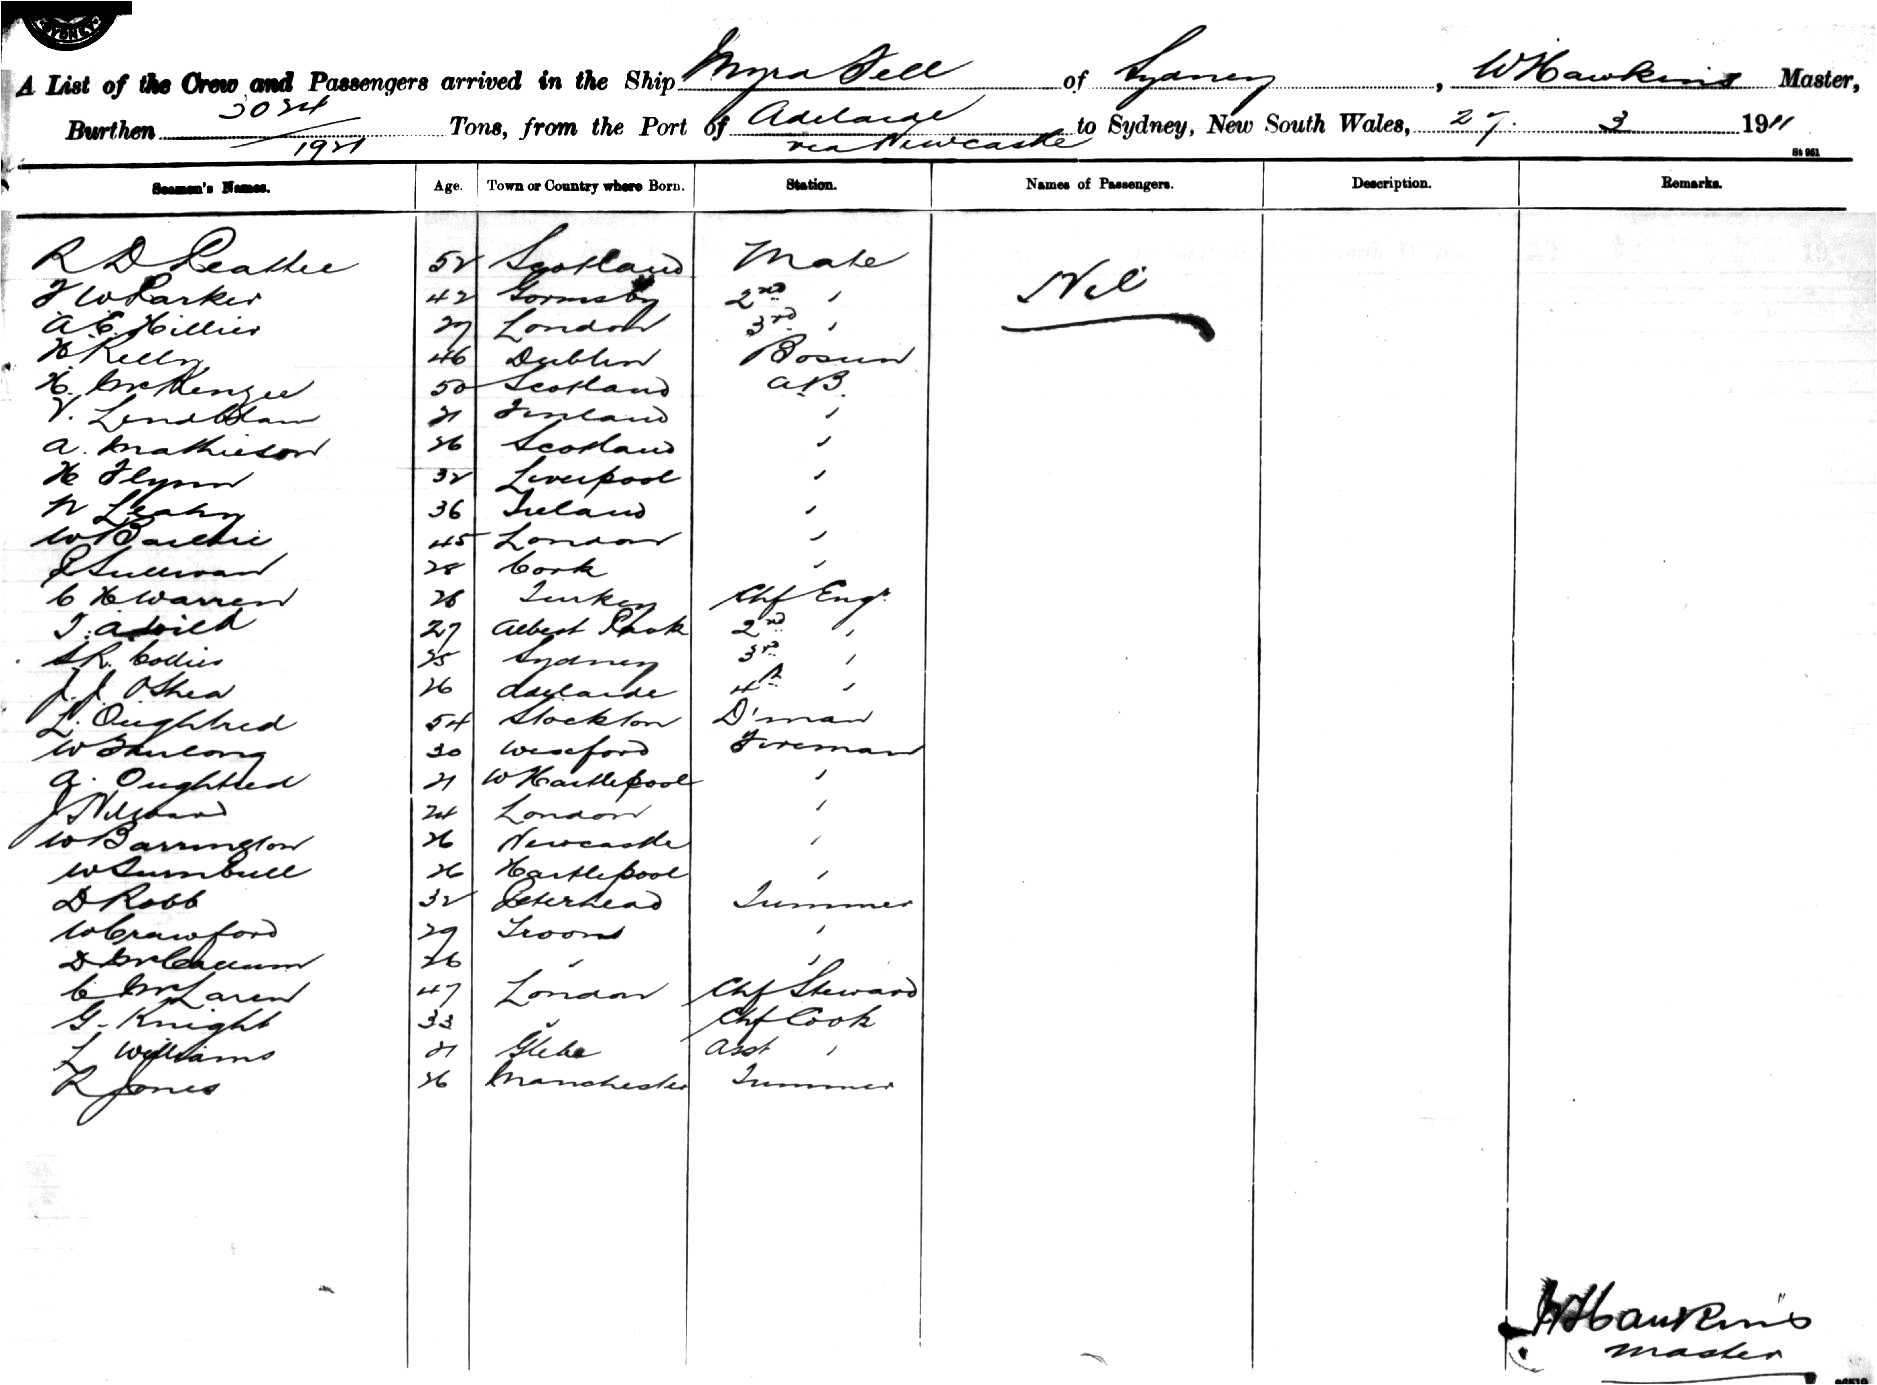 SYDNEY
A List of the Crew and Passengers arrived in the Ship Myra Fell of Sydney, W Hawkins Master,
Burthen 3024/1921 Tons, from the Port of Adelaide via Newcastle to Sydney, New South Wales, 27. 3 1911
St 961
Seamen's Names. Age. Town or Country where Born. Station. Names of Passengers. Description. Remarks.
R D Beattie 52 Scotland Mate Nil
F W Parker 42 Gormsby 2nd "
A. E. Hillier 27 London 3rd "
H Kelly 46 Dublin Bosun
H. McKenzie 50 Scotland A.B.
V. Lindblam 21 Finland "
A. Mathieson 26 Scotland "
H Flynn 32 Liverpool "
N Leahy 36 Ireland "
W 45 London "
J Sullivan 28 Cork "
C H Warren 26 Turkey Chf Engr
T. A. Wild 27 Albert Park 2nd "
S R. Collier 25 Sydney 3rd "
J. J. O'Shea 26 Adelaide 4th "
L. Oughtred 54 Stockton D'man
W Furlong 30 Wexford Fireman
A. Oughtred 21 W Hartlepool "
J 24 London "
W Barrington 26 Newcastle "
W Turnbull 26 Hartlepool "
D Robb 32 Peterhead Trimmer
W Crawford 29 Troon "
D McCallum 26 " "
C McLaren 47 London Chf Steward
G. Knight 33 " Chf Cook
L Williams 21 Glebe Asst "
R Jones 26 Manchester Trimmer
W Hawkins
Master